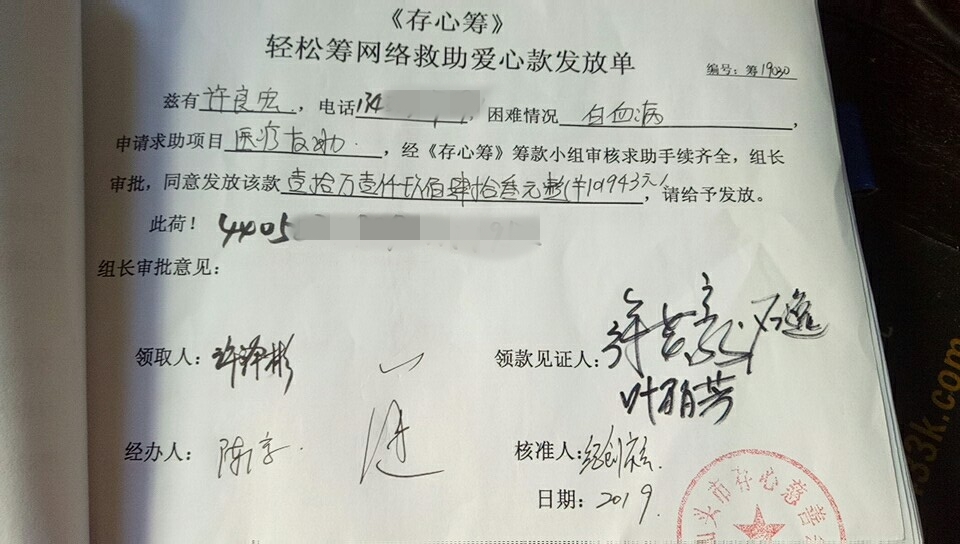 《存心筹》
轻松筹网络救助爱心款发放单
编号：筹19030
兹有许良宏，电话134，困难情况 白血病，
申请求助项目医疗友助，经《存心筹》筹款小组审核求助手续齐全，组长
审批，同意发放该款壹拾万壹仟玖佰肆拾叁元整(¥101943元)，请给予发放。
此荷！4405
组长审批意见：
领取人：许泽彬 领款见证人：
叶丽芳
经办人： 核准人：
日期：2019.
汕头市存心慈善会
33k.com